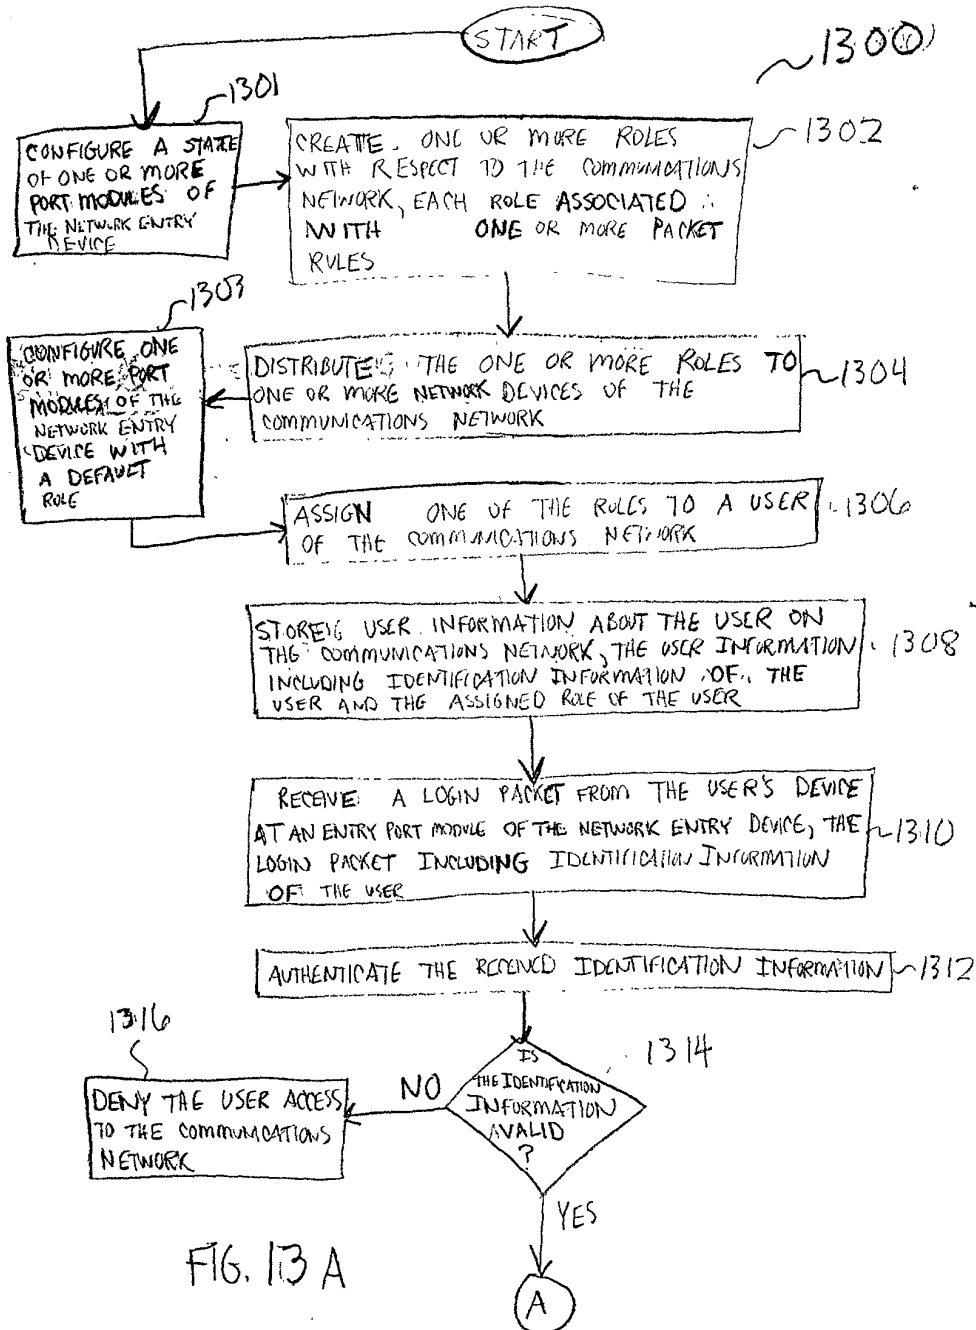 START
1300
1301
CONFIGURE A STATE
OF ONE OR MORE
PORT MODULES OF
THE NETWORK ENTRY
DEVICE
1302
CREATE ONE OR MORE ROLES
WITH RESPECT TO THE COMMUNICATIONS
NETWORK, EACH ROLE ASSOCIATED
WITH ONE OR MORE PACKET
RULES
1303
CONFIGURE ONE
OR MORE PORT
MODULES OF THE
NETWORK ENTRY
DEVICE WITH
A DEFAULT
ROLE
DISTRIBUTE THE ONE OR MORE ROLES TO
ONE OR MORE NETWORK DEVICES OF THE
COMMUNICATIONS NETWORK
1304
ASSIGN ONE OF THE ROLES TO A USER
OF THE COMMUNICATIONS NETWORK
1306
STORE USER INFORMATION ABOUT THE USER ON
THE COMMUNICATIONS NETWORK, THE USER INFORMATION
INCLUDING IDENTIFICATION INFORMATION OF THE
USER AND THE ASSIGNED ROLE OF THE USER
1308
RECEIVE A LOGIN PACKET FROM THE USER'S DEVICE
AT AN ENTRY PORT MODULE OF THE NETWORK ENTRY DEVICE, THE
LOGIN PACKET INCLUDING IDENTIFICATION INFORMATION
OF THE USER
1310
AUTHENTICATE THE RECEIVED IDENTIFICATION INFORMATION
1312
1314
IS
THE IDENTIFICATION
INFORMATION
VALID
?
NO
1316
DENY THE USER ACCESS
TO THE COMMUNICATIONS
NETWORK
YES
A
FIG. 13A